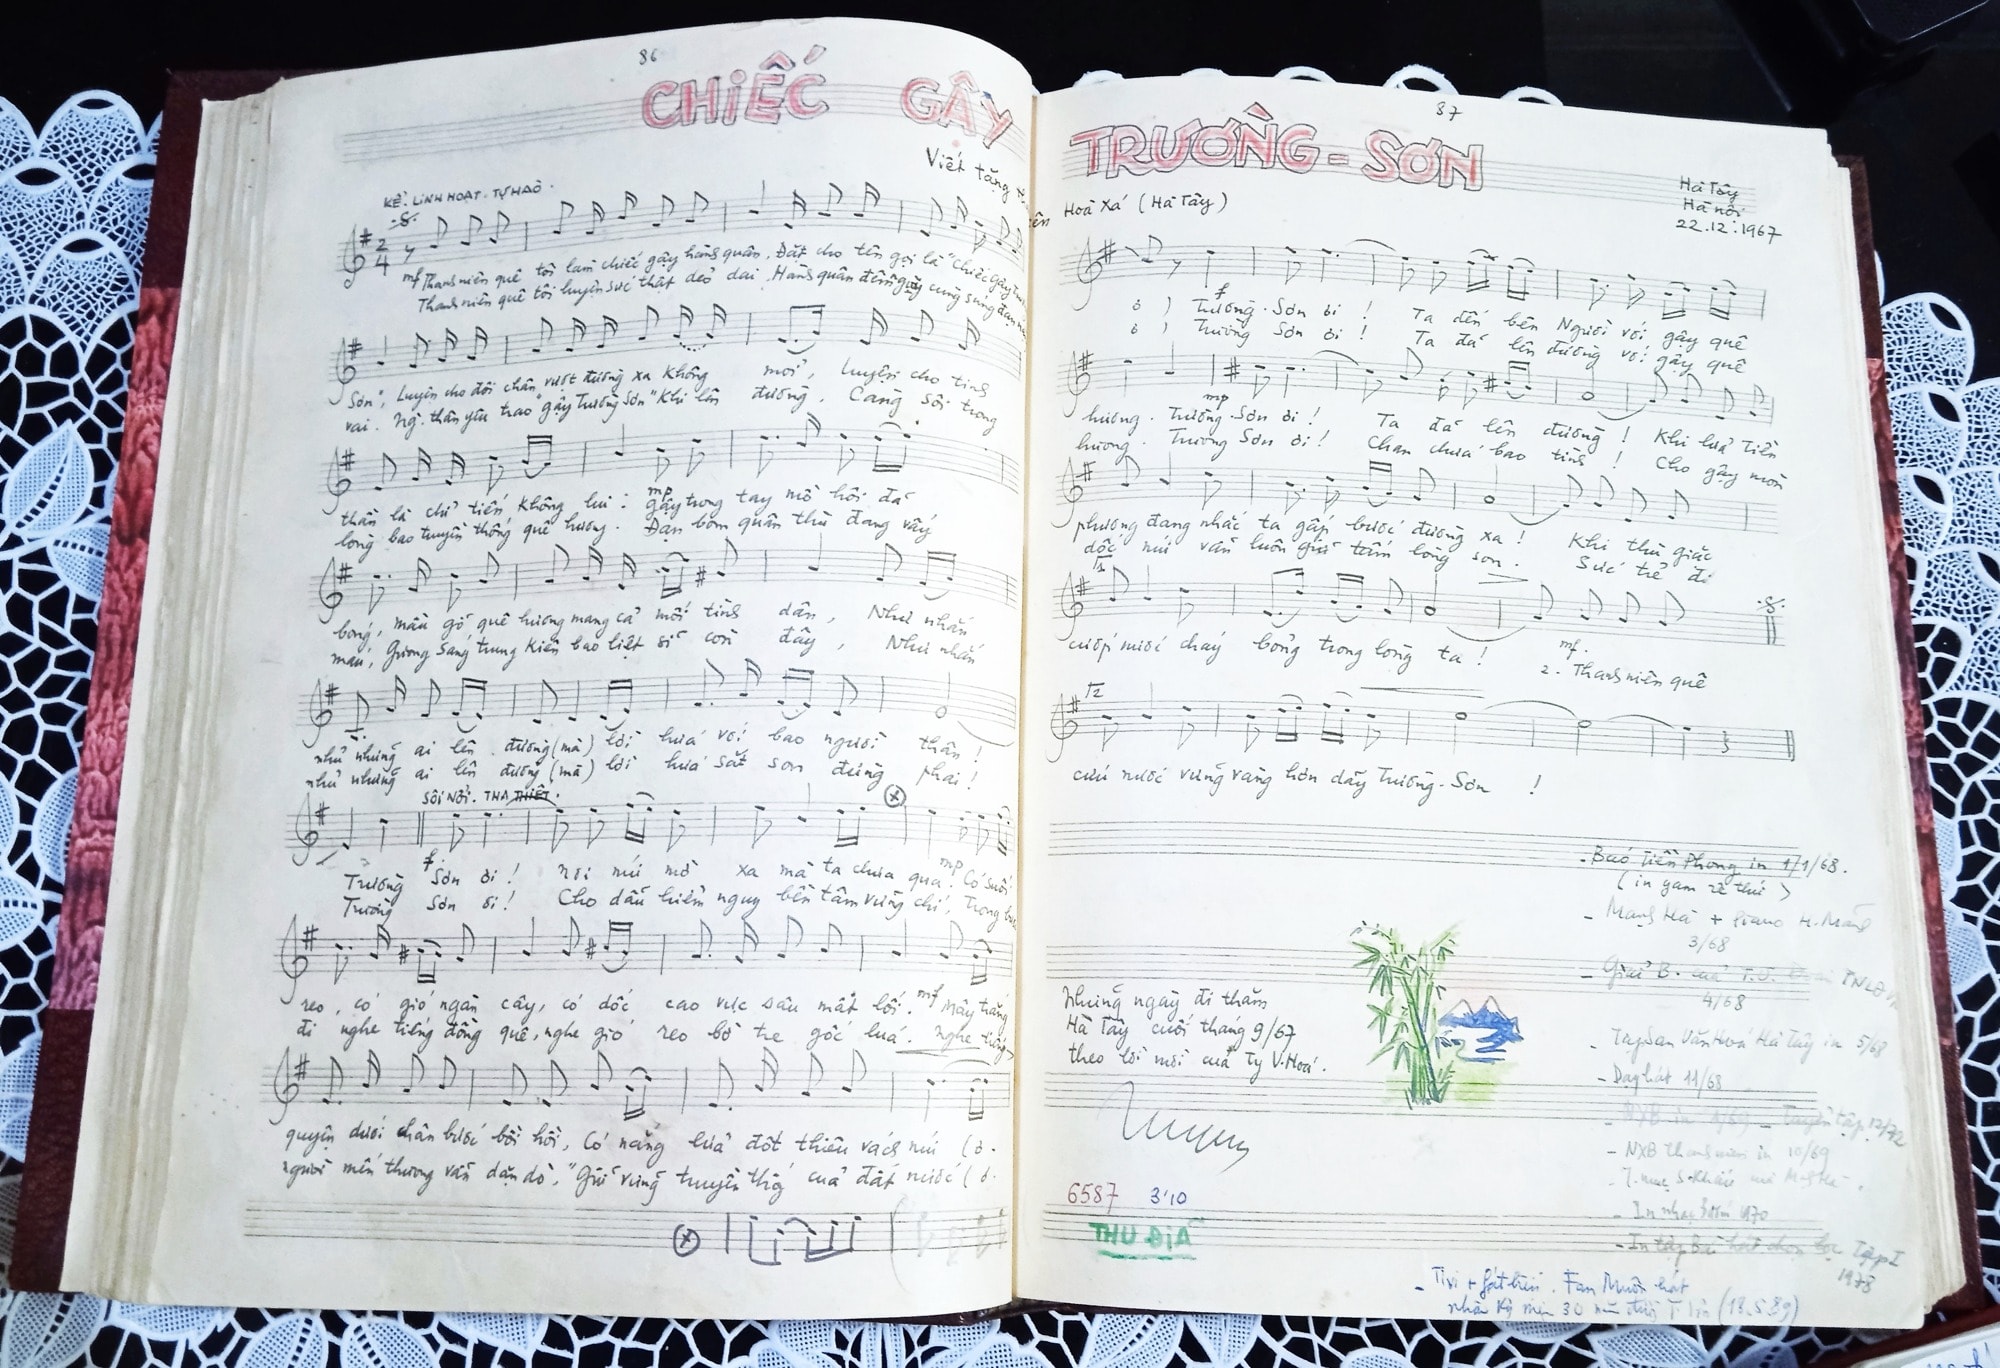 86
CHIẾC GẬY
Viết tặng
KỂ. LINH HOẠT. TỰ HÀO.
2
4
mf Thanh niên quê tôi làm chiếc gậy hành quân, Đặt cho tên gọi là "Chiếc Gậy Trường
Thanh niên quê tôi luyện sức thật dẻo dai. Hành quân đêm ngày cùng súng đạn
Sơn", Luyện cho đôi chân vượt đường xa không mỏi, Luyện cho tinh
vai. Ng. thân yêu trao "gậy Trường Sơn" khi lên đường, Càng sôi trong
thần là chỉ tiến không lui: mp gậy trong tay mồ hôi đã
lòng bao truyền thống quê hương. Đạn bom quân thù đang vấy
bóng, màu gỗ quê hương mang cả mối tình dân, Như nhắn
máu, Gương sáng trung kiên bao liệt sĩ còn đây, Như nhắn
nhủ những ai lên đường (mà) lời hứa với bao người thân!
nhủ những ai lên đường (mà) lời hứa sắt son đừng phai!
SÔI NỔI. THA THIẾT.
Trường f Sơn ơi! nơi núi mờ xa mà ta chưa qua! mp Có suối
Trường Sơn ơi! Cho dẫu hiểm nguy bền tâm vững chí, Trong
reo, có gió ngàn cây, có dốc cao vực sâu mất lối. mf Mây trắng
đi nghe tiếng đồng quê, nghe gió reo bờ tre gốc lúa. nghe tiếng
quyện dưới chân bước bồi hồi, Có nắng lửa đốt thiêu vách núi (ơ.
người mến thương vẫn dặn dò, "Giữ vững truyền thống của đất nước (ơ.
87
TRƯỜNG-SƠN
Hòa Xá (Hà Tây)
Hà Tây
Hà nội
22.12.1967
ơ) f Trường-Sơn ơi! Ta đến bên Người với gậy quê
ơ) Trường Sơn ơi! Ta đã lên đường với gậy quê
hương. mp Trường-Sơn ơi! Ta đã lên đường! Khi lửa Tiền
hương. Trường Sơn ơi! Chan chứa bao tình! Cho gậy mòn
phương đang nhắc ta gấp bước đường xa! Khi thù giặc
dốc núi vẫn luôn giữ tấm lòng son. Sức trẻ đi
1
cướp nước cháy bỏng trong lòng ta! mf. 2. Thanh niên quê
2
cứu nước vững vàng hơn dãy Trường-Sơn!
- Báo Tiền Phong in 1/1/68.
- Mạnh Hà + piano H.
3/68
- Giải B. của T.Ư.
4/68
- Tập San Văn Hoá Hà Tây in 5/68
- Dạy hát 11/68
- NXB in - Tuyển tập 12/72
- NXB Thanh niên in 10/69
- In nhạc bướm 1970
- In tập Bài hát chọn lọc Tập I
1978
Những ngày đi thăm
Hà Tây cuối tháng 9/67
theo lời mời của Ty V. Hoá.
6587 3'10
THU ĐĨA
- Tivi + phát
nhân kỷ niệm 30 năm (18.5.89)